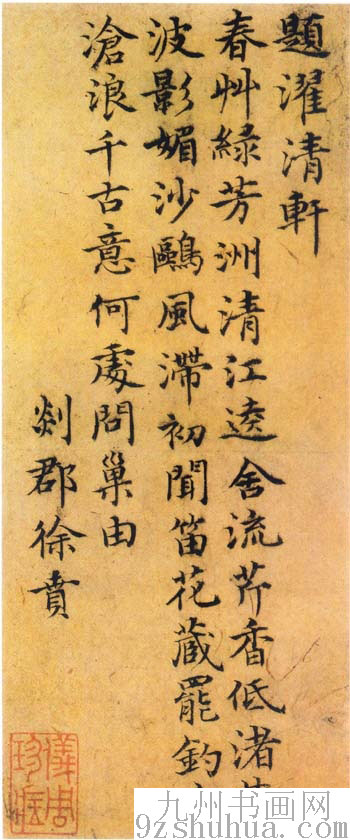 題濯清軒
春艸綠芳洲清江遶舍流芹香低渚
波影媚沙鷗風滯初聞笛花藏罷釣
滄浪千古意何處問巢由
剡郡徐賁
儀周珍藏
九州书画网
9zshuhua.com